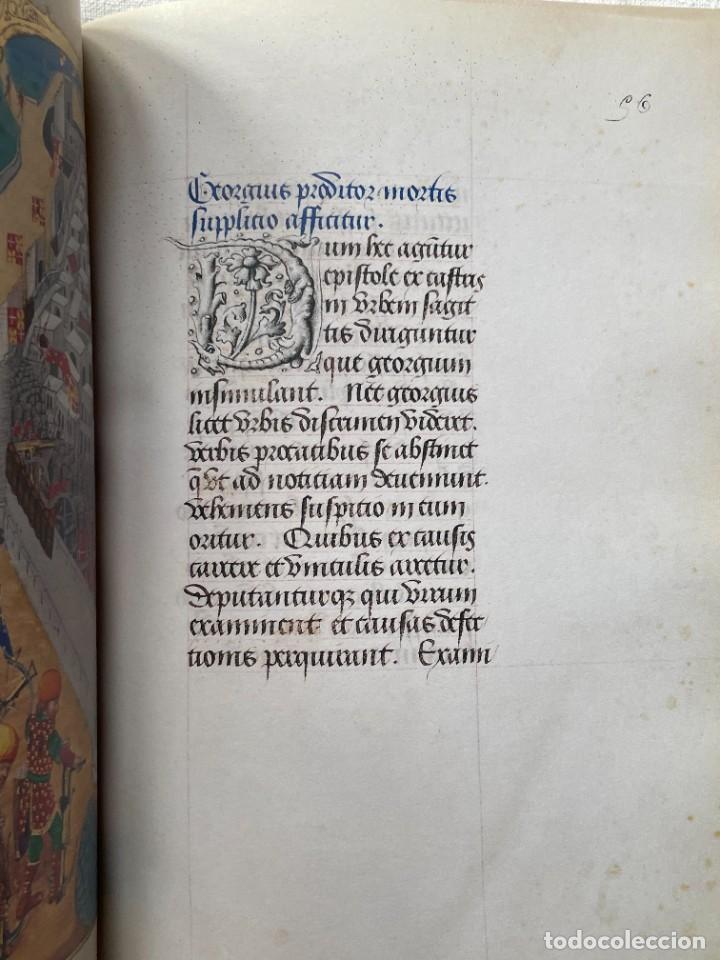 96
Georgius proditor mortis
supplicio afficitur.
Dum hec agũtur
epistole ex castris
in vrbem sagit
tis diriguntur
que georgium
insimulant. Nec georgius
licet vrbis discrimen videret.
verbis procacibus se abstinet
q̃ vt ad notitiam deuenirunt.
vehemens suspitio in eum
oritur. Quibus ex causis
carcere et vinculis arcetur.
deputanturqz qui virum
examinent et causas defec
tionis perquirant. Exami
todocoleccion
todocoleccion.net